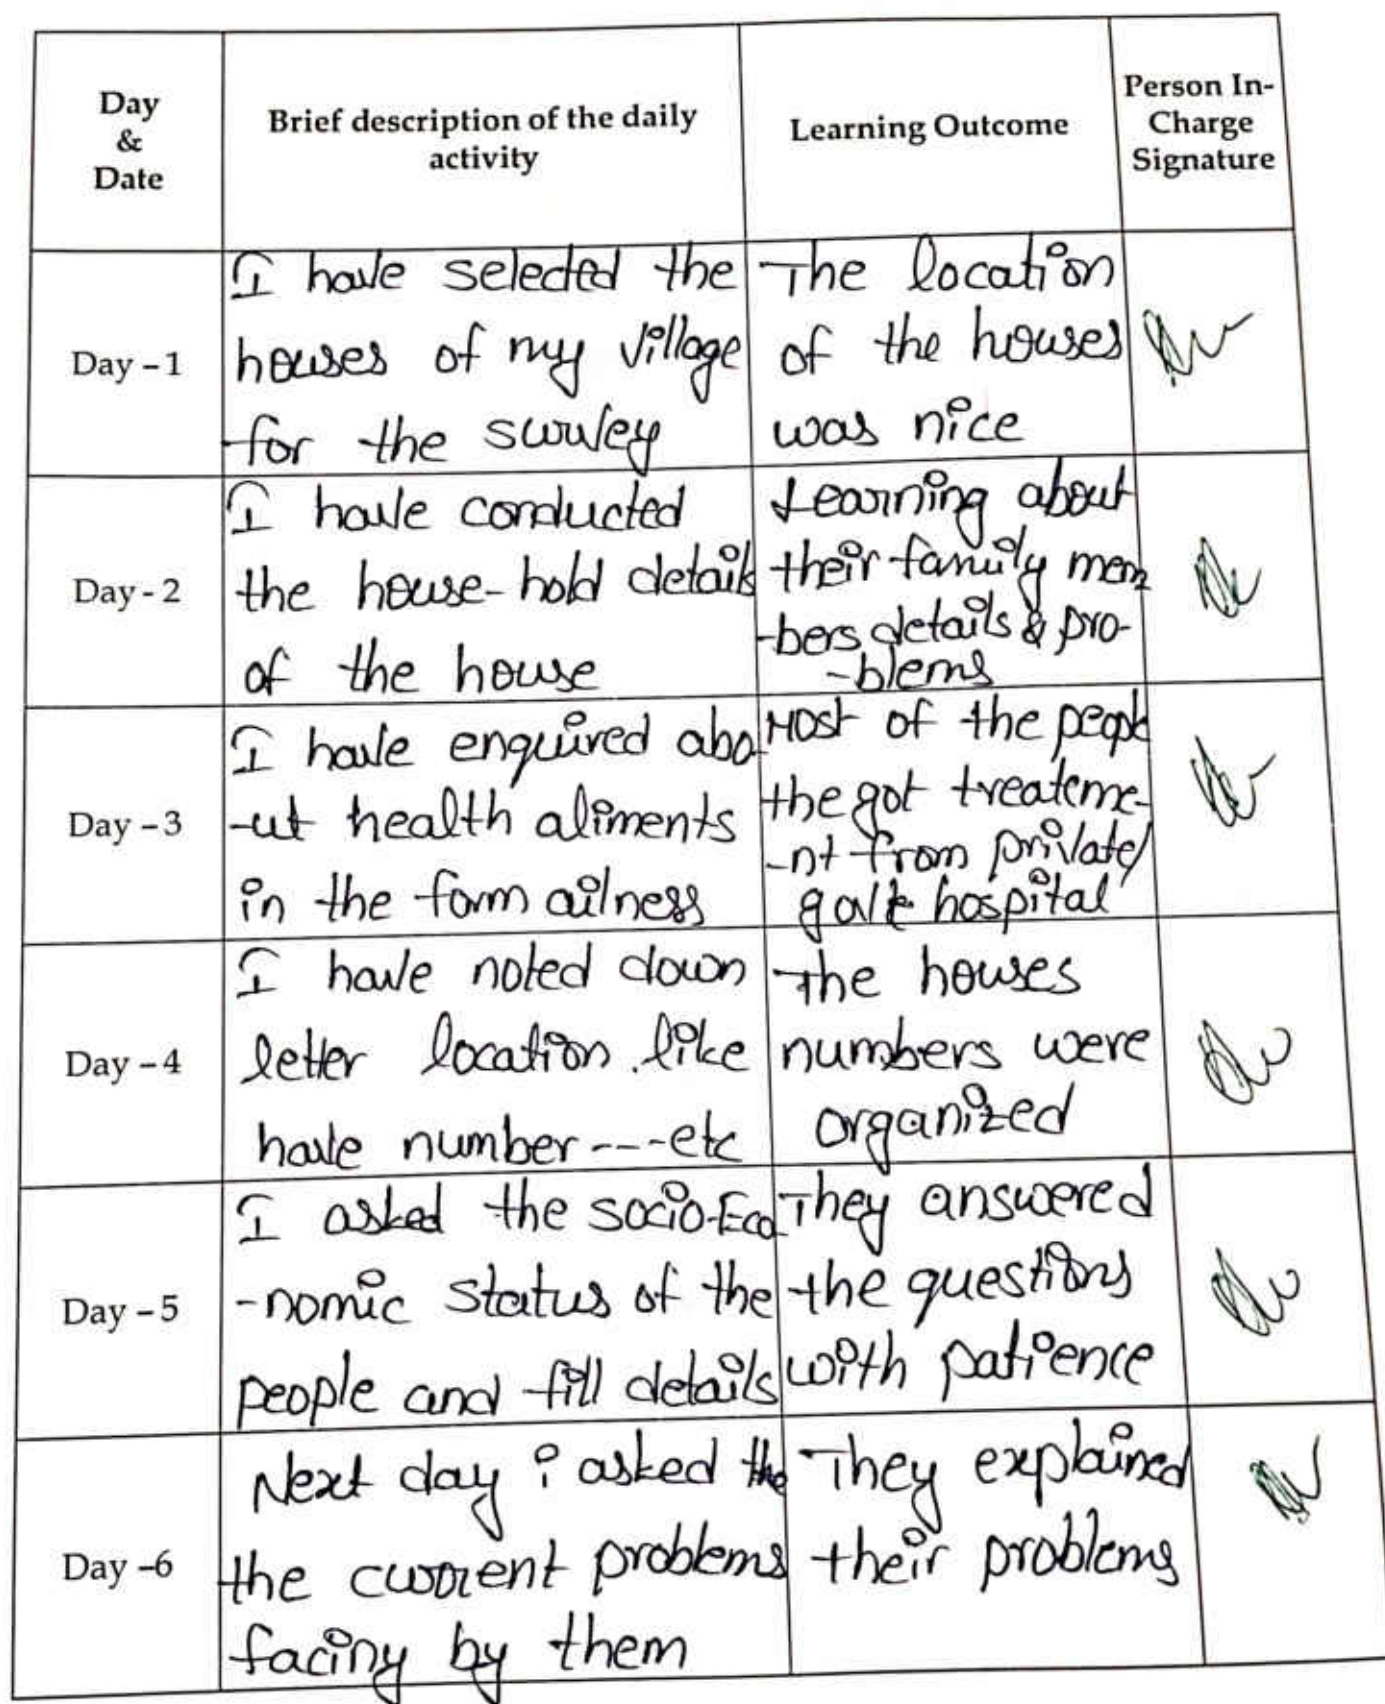 Day & Date
Brief description of the daily activity
Learning Outcome
Person In-Charge Signature
Day – 1
I have selected the
houses of my village
for the survey
The location
of the houses
was nice
Day - 2
I have conducted
the house-hold details
of the house
Learning about
their family mem
-bers details & pro-
-blems
Day – 3
I have enquired abo
-ut health aliments
in the form ailness
Most of the people
the got treateme-
-nt from private/
govt hospital
Day – 4
I have noted down
letter location like
have number ---- etc
The houses
numbers were
organized
Day – 5
I asked the socio-Eco
-nomic status of the
people and fill details
They answered
the questions
with patience
Day –6
Next day i asked the
the current problems
faciny by them
They explained
their problems